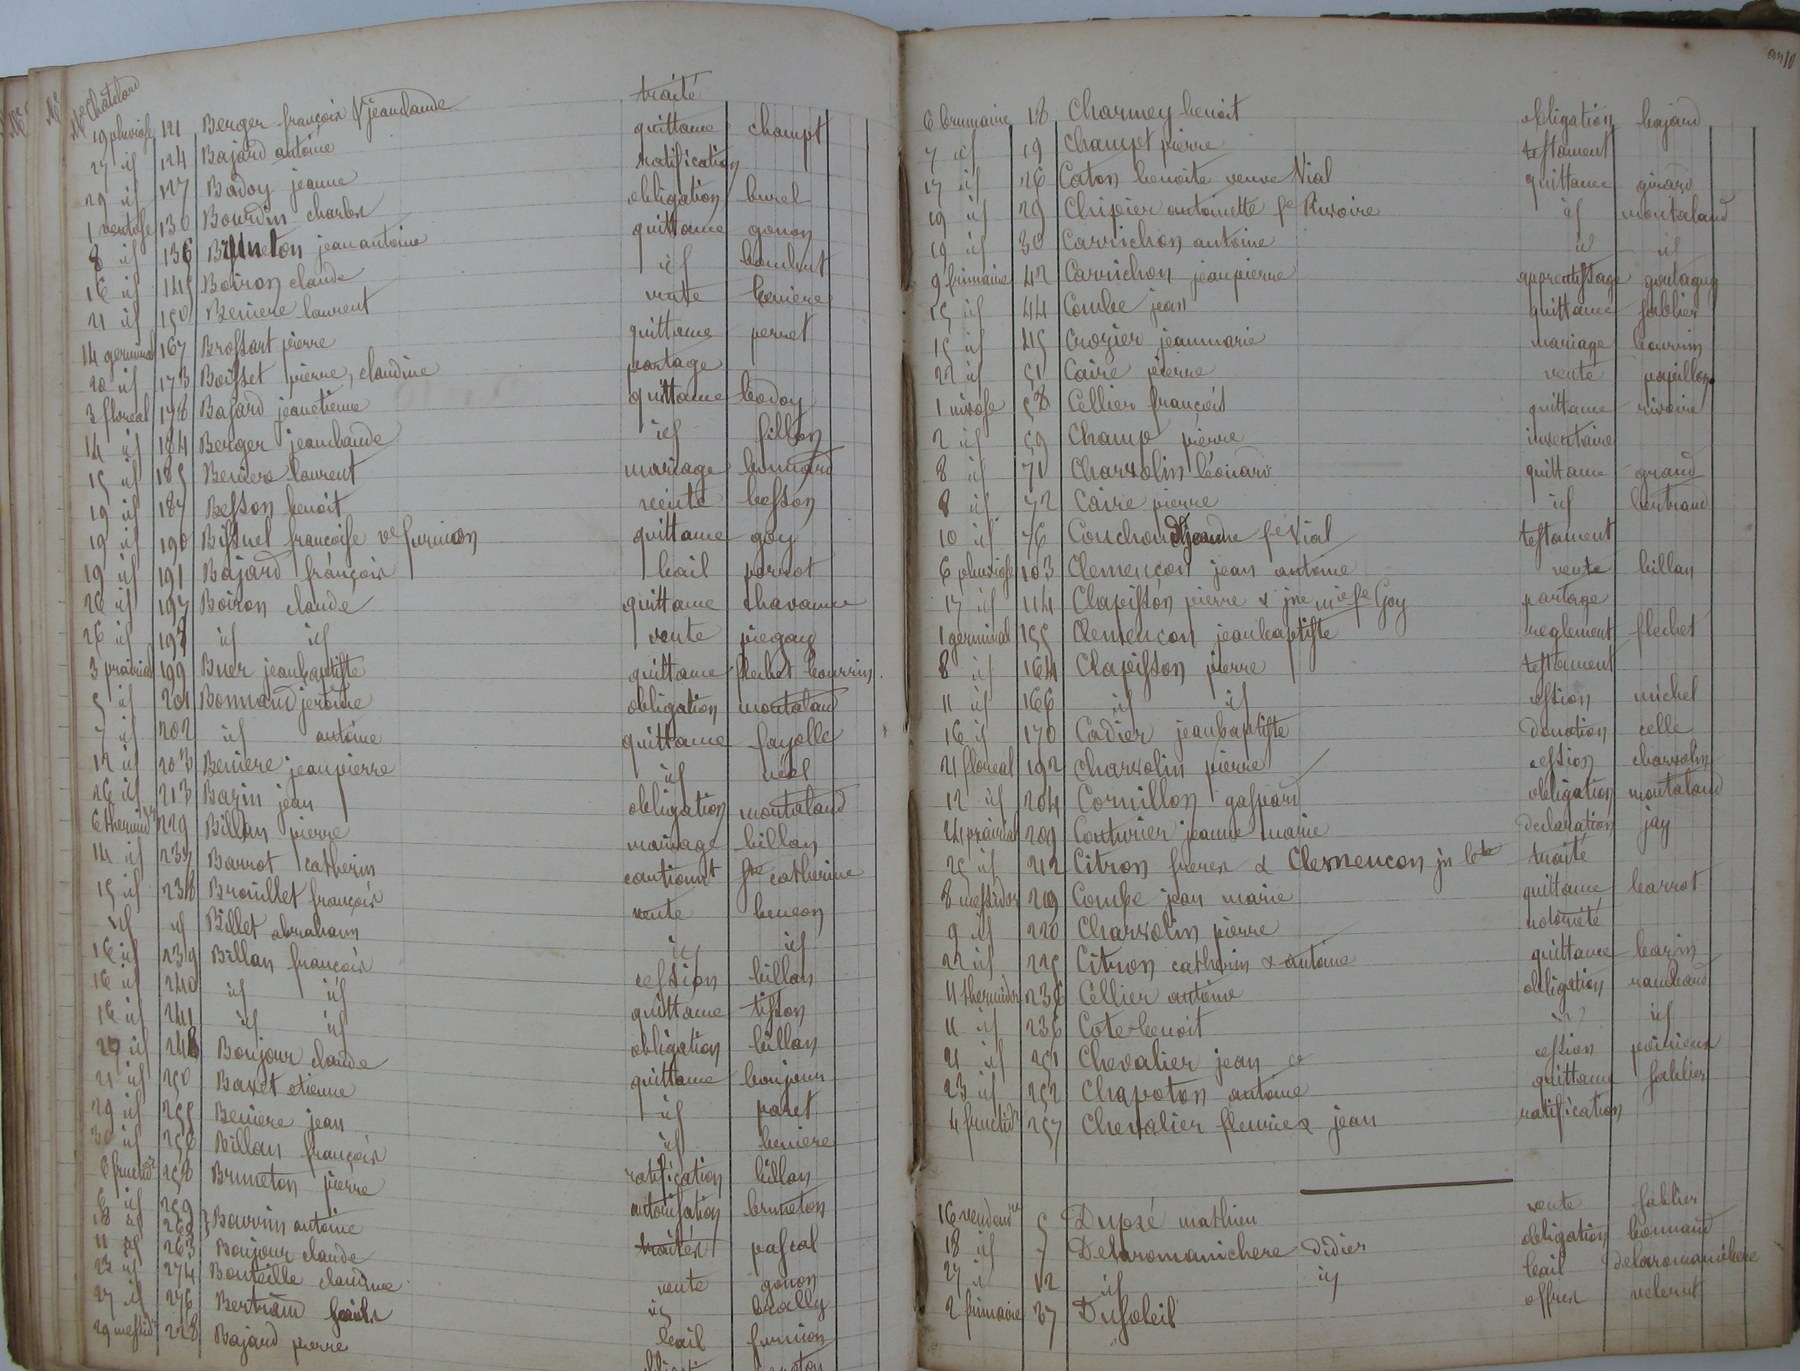 Me Chatelard
19 pluviose 121 Berger françois & jeanclaude traité
27 id 124 Bajard antoine quittance champt
29 id 127 Badoy jeanne ratification
1 ventose 130 Bourdin charles obligation burel
8 id 136 Bruneton jean antoine quittance gonon
16 id 145 Boiron claude id
21 id 150 Beniere laurent vente beniere
14 germinal 167 Brossart pierre quittance perret
20 id 173 Boisset pierre, claudine partage
3 floreal 178 Bajard jeanetienne quittance badoy
14 id 184 Berger jeanclaude id fillon
15 id 185 Beniere laurent mariage
19 id 187 Besson benoit vente besson
19 id 190 Bissuel françoise ve furnion quittance goy
19 id 191 Bajard françois bail perrot
26 id 197 Boiron claude quittance chavanne
26 id 198 id id vente piegay
3 prairial 199 Buer jeanbaptiste quittance flechet bourrin
5 id 201 Bonnand jerome obligation montaland
7 id 202 id antoine quittance fayolle
12 id 203 Beniere jeanpierre id néel
26 id 213 Bazin jean obligation montaland
6 thermidr 229 Billan pierre mariage billan
14 id 237 Barrot catherin cautiont ste catherine
15 id 238 Brouillet françois vente
id id Billet abraham id id
16 id 239 Billan françois cession billan
16 id 240 id id quittance tisson
16 id 241 id id obligation billan
20 id 248 Bonjour claude quittance bonjour
21 id 250 Baret etienne id paret
29 id 255 Beniere jean id beniere
30 id 256 Billan françois ratification billan
6 fructidr 258 Bruneton pierre autorisation bruneton
6 id 259
18 id Bourrin antoine traités pascal
11 id 263 Bonjour claude vente gonon
23 id 274 Bouteille claudine id
27 id 276 Bertrand bail furnion
29 messidr 228 Bajard pierre
an 10
6 brumaire 18 Charmey benoit obligation bajard
7 id 19 Champt pierre testament
17 id 26 Caton benoite veuve Vial quittance girard
19 id 29 Chipier antoinette fe Rivoire id montaland
19 id 30 Carrichon antoine id id
9 frimaire 42 Carrichon jeanpierre apprentissage goutagny
15 id 44 Combe jean quittance fahlier
15 id 45 Crozier jeanmarie mariage bourrin
22 id 51 Caire pierre vente papillon
1 nivose 58 Cellier françois quittance rivoire
2 id 59 Champ pierre inventaire
8 id 71 Charvolin léonard quittance giraud
8 id 72 Caire pierre id bertrand
10 id 76 Couchoud jeanne fe Vial testament
6 pluviose 103 Clemençon jean antoine vente billan
17 id 114 Chapisson pierre & jne mie fe Goy partage
1 germinal 155 Clemencon jeanbaptiste reglement flechet
8 id 164 Chapisson pierre testament
11 id 166 id id cession michel
16 id 170 Cadier jeanbaptiste donation celle
21 floreal 192 Charvolin pierre cession charvolin
12 id 204 Cornillon gaspard obligation montaland
24 prairial 209 Couturier jeanne marie declaration jay
25 id 212 Citron freres & Clemencon jn bte traité
8 messidor 219 Combe jean marie quittance barrot
9 id 220 Charvolin pierre notoriété
22 id 225 Citron catherin & antoine quittance bazin
11 thermidor 236 Cellier antoine obligation rambaud
11 id 236 Cote benoit id id
21 id 251 Chevalier jean cession poirieux
23 id 252 Chapoton antoine quittance fahlier
4 fructidr 257 Chevalier fleurie & jean ratification
16 vendemre 5 Dupré mathieu vente fahlier
18 id 7 Delaromanichere Didier obligation bonnand
27 id 12 id id bail delaromanichere
2 frimaire 37 Dufoleil offres